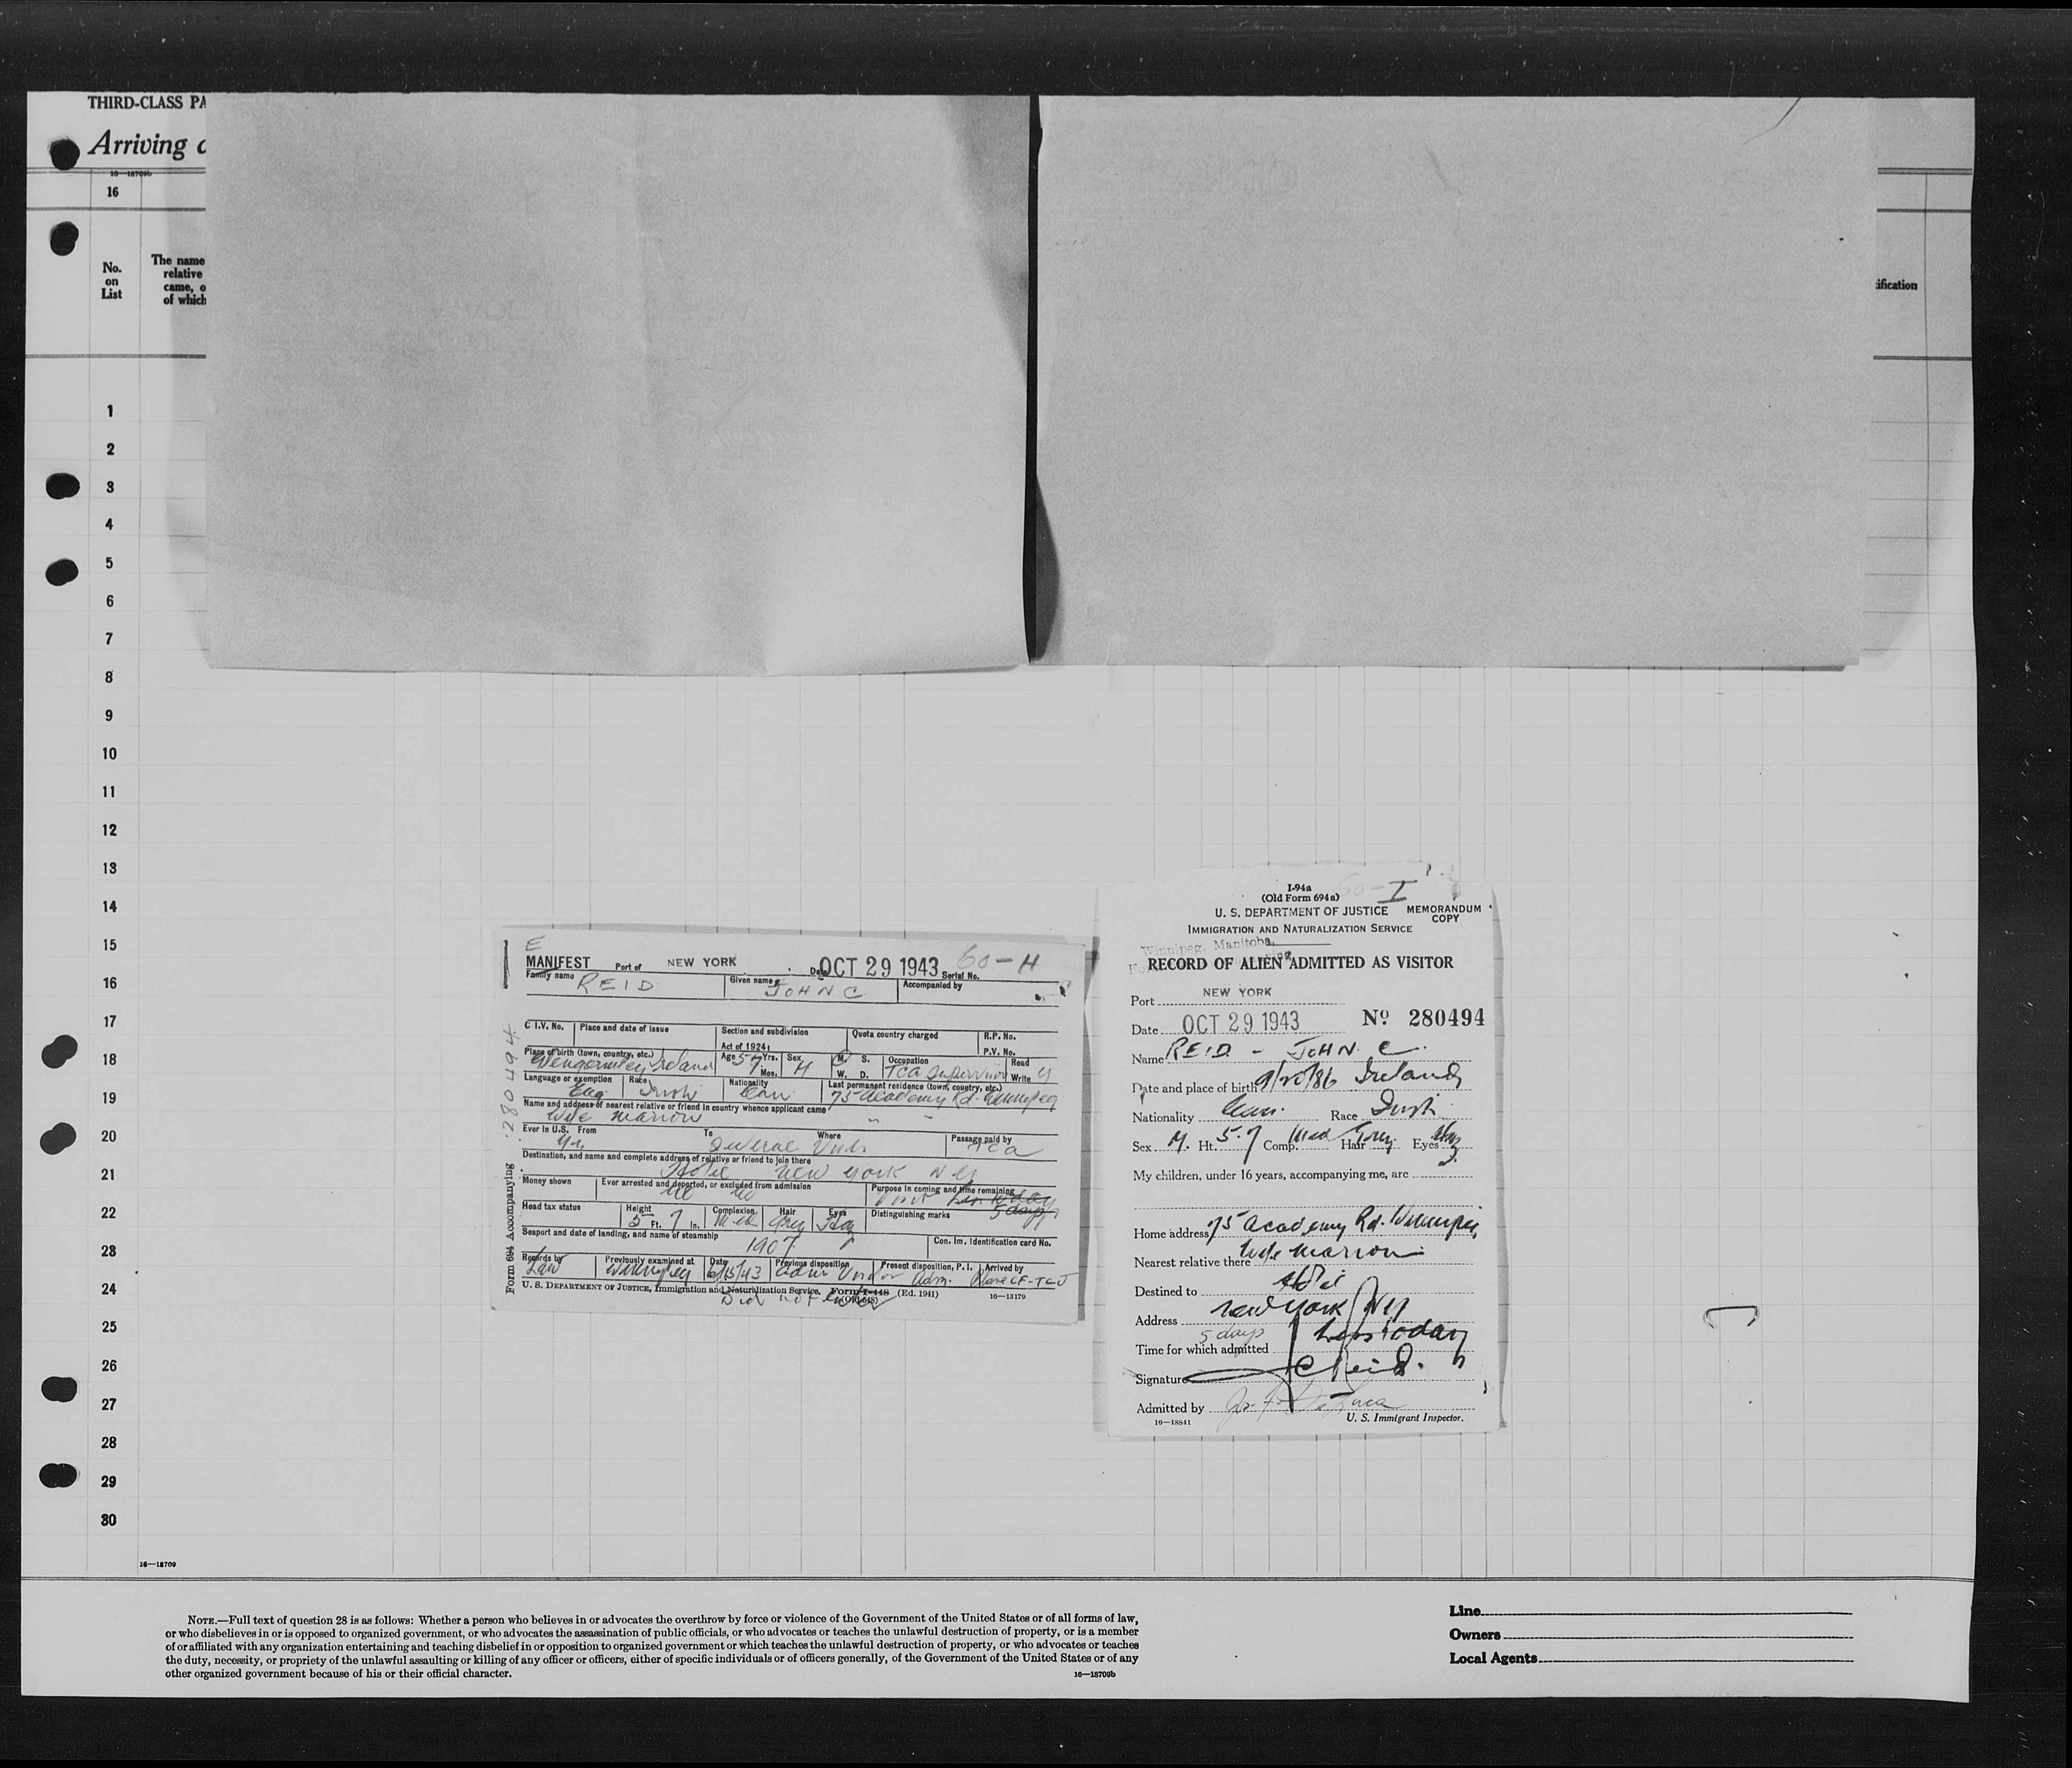 THIRD-CLASS PA
Arriving
16—18709b
16
No.
on
List
The name
relative
came, o
of which
ification
1
2
3
4
5
6
7
8
9
10
11
12
13
14
15
16
17
18
19
20
21
22
23
24
25
26
27
28
29
30
16—18709
E
MANIFEST Port of NEW YORK Date OCT 29 1943 Serial No. 60-H
Family name REID Given name JOHN C Accompanied by
C I.V. No. Place and date of issue Section and subdivision Quota country charged R.P. No.
Act of 1924: P.V. No.
Place of birth (town, country, etc.) Ireland Age 57 Yrs. Mos. Sex M M. S. W. D. Occupation TCA Supervisor Read Write y
Language or exemption Eng Race Irish Nationality Can Last permanent residence (town, country, etc.) 75 Academy Rd. Winnipeg
Name and address of nearest relative or friend in country whence applicant came
Wife Marion
Ever in U.S. From To Where Passage paid by
Several Visits TCA
Destination, and name and complete address of relative or friend to join there
Hotel New York NY
Money shown Ever arrested and deported, or excluded from admission No No Purpose in coming and time remaining Visit 5 days
Head tax status Height 5 Ft. 7 In. Complexion Med Hair Grey Eyes Haz Distinguishing marks
Seaport and date of landing, and name of steamship 1907 Con. Im. Identification card No.
Records by Previously examined at Winnipeg Date 6/15/43 Previous disposition Present disposition, P. I. Adm. Arrived by Plane CF-TCJ
U. S. Department of Justice, Immigration and Naturalization Service. Form I-448 (Ed. 1941) 16—13179
Did not enter (Old 548)
Form 694 Accompanying 280494
I-94a 60-I
(Old Form 694a)
U. S. DEPARTMENT OF JUSTICE MEMORANDUM COPY
IMMIGRATION AND NATURALIZATION SERVICE
Winnipeg, Manitoba,
RECORD OF ALIEN ADMITTED AS VISITOR
Port NEW YORK
Date OCT 29 1943 No 280494
Name REID - JOHN C.
Date and place of birth 9/20/86 Ireland
Nationality Can. Race Irish
Sex M. Ht. 5-7 Comp. Med Hair Grey Eyes Haz
My children, under 16 years, accompanying me, are
Home address 75 Academy Rd. Winnipeg
Nearest relative there Wife Marion
Destined to Hotel
Address New York NY
5 days
Time for which admitted less today
Signature J C Reid.
Admitted by
16—18841 U. S. Immigrant Inspector.
NOTE.—Full text of question 28 is as follows: Whether a person who believes in or advocates the overthrow by force or violence of the Government of the United States or of all forms of law,
or who disbelieves in or is opposed to organized government, or who advocates the assassination of public officials, or who advocates or teaches the unlawful destruction of property, or is a member
of or affiliated with any organization entertaining and teaching disbelief in or opposition to organized government or which teaches the unlawful destruction of property, or who advocates or teaches
the duty, necessity, or propriety of the unlawful assaulting or killing of any officer or officers, either of specific individuals or of officers generally, of the Government of the United States or of any
other organized government because of his or their official character.
16—18709b
Line
Owners
Local Agents